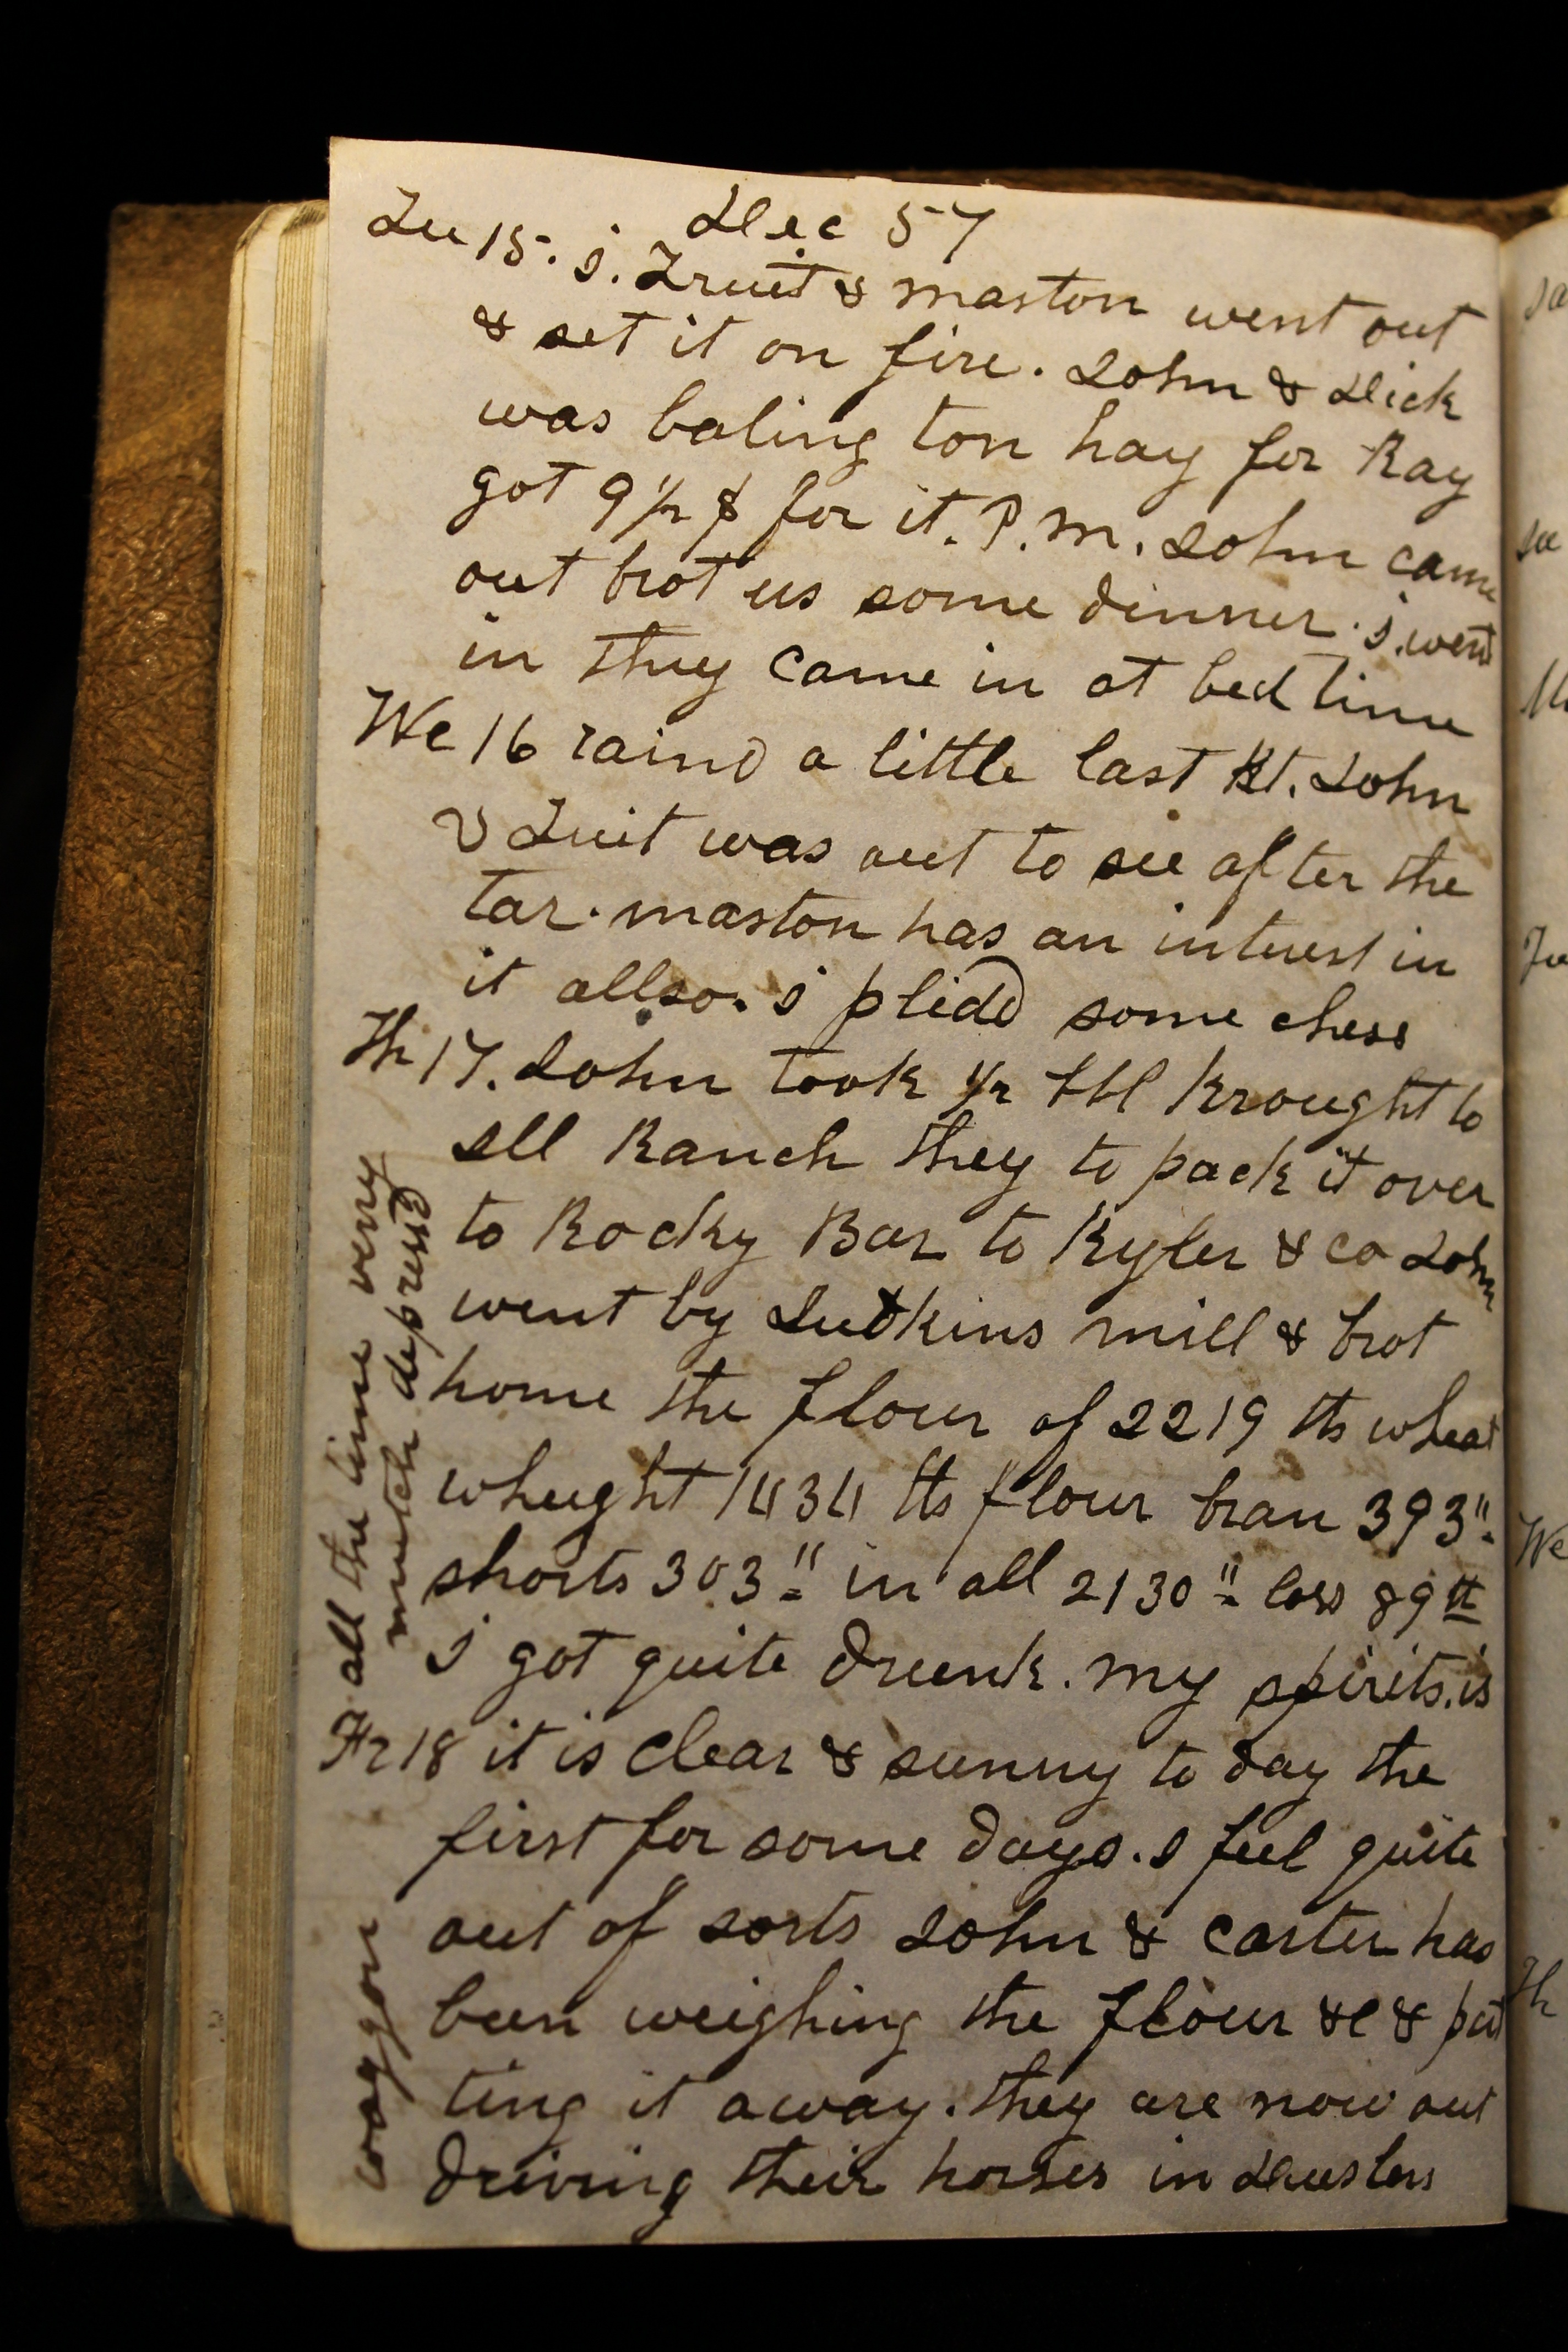 Dec 57
Tu 15. I. Truit & maston went out
& set it on fire. John & Dick
was baling ton hay for Ray
got 9 1/2 $ for it. P.M. John came
out brot us some dinner. I. went
in they came in at bed time
We 16 raind a little last Nt. John
& Truit was out to see after the
tar. maston has an interest in
it allso. I plaid some chess
Th 17. John took 1/2 bbl Krought to
all Ranch they to pack it over
to Rocky Bar to Kyler & co John
went by Judkins mill & brot
home the flour of 2219 lbs wheat
wheight 1434 lbs flour bran 393"
shorts 303" in all 2130" loss 89 lb
I got quite drunk. my spirits is
all the time very
mutch depressd
Fr 18 it is clear & sunny to day the
first for some days. I feel quite
out of sorts John & Carter has
been weighing the flour &c & put
ting it away. they are now out
driving their horses in
waggon